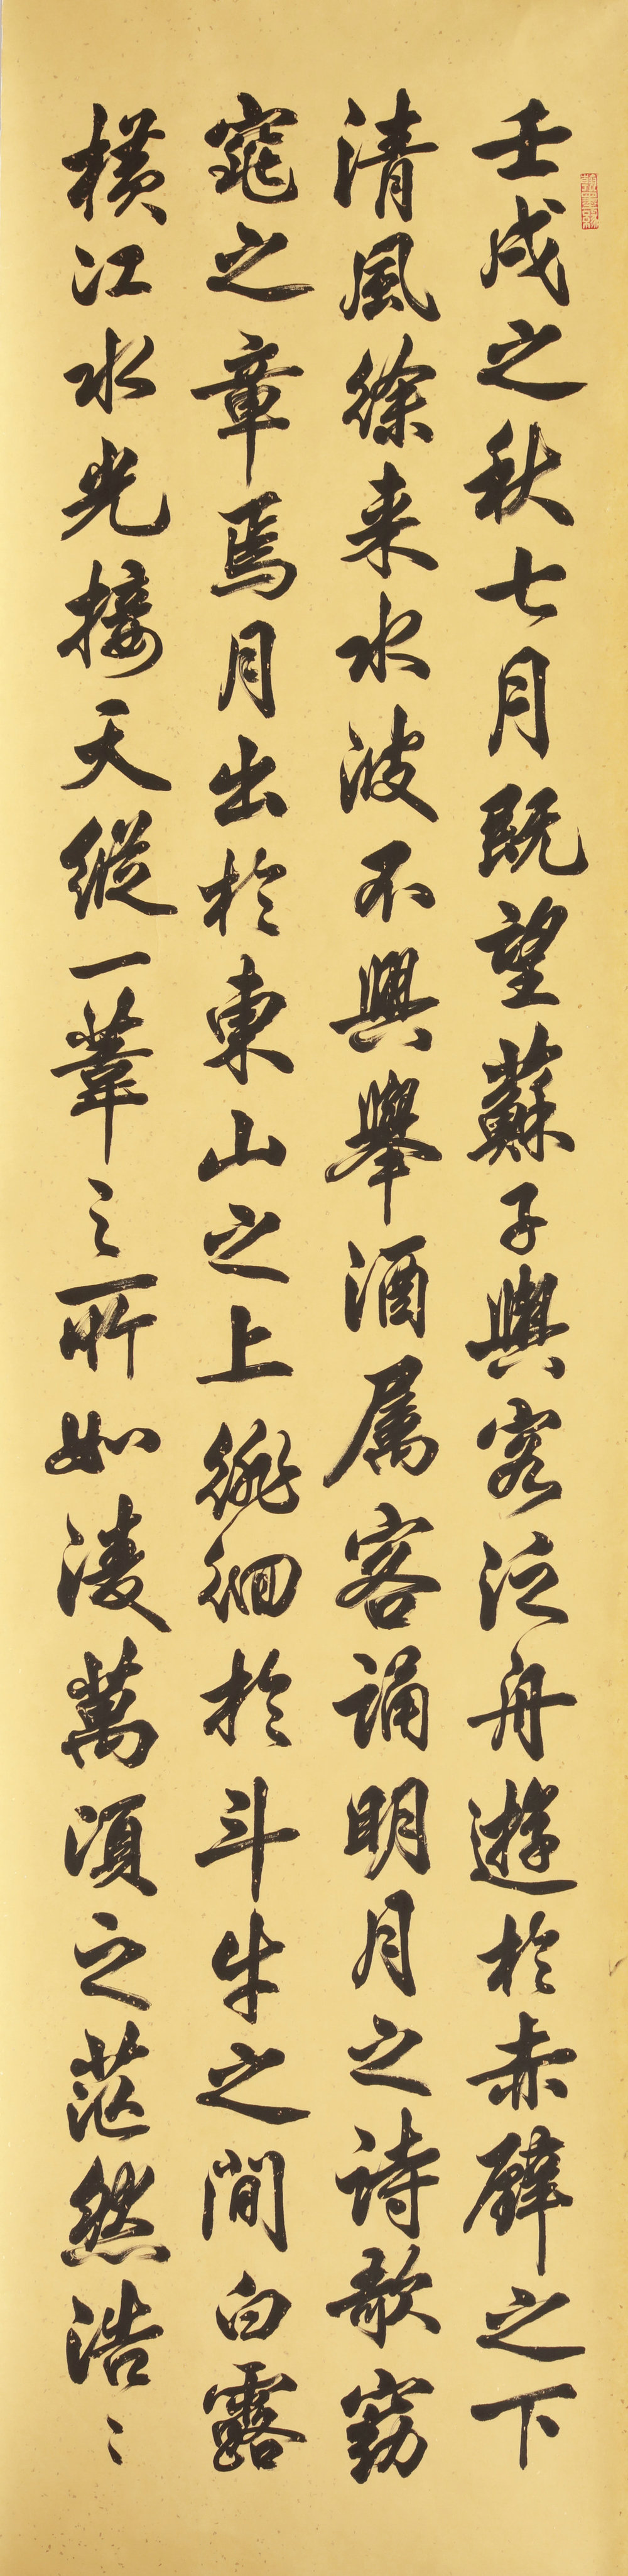 壬戌之秋七月既望蘇子與客泛舟遊於赤壁之下
清風徐来水波不興舉酒属客誦明月之詩歌窈
窕之章焉月出於東山之上徘徊於斗牛之間白露
横江水光接天縱一葦之所如凌萬頃之茫然浩〻